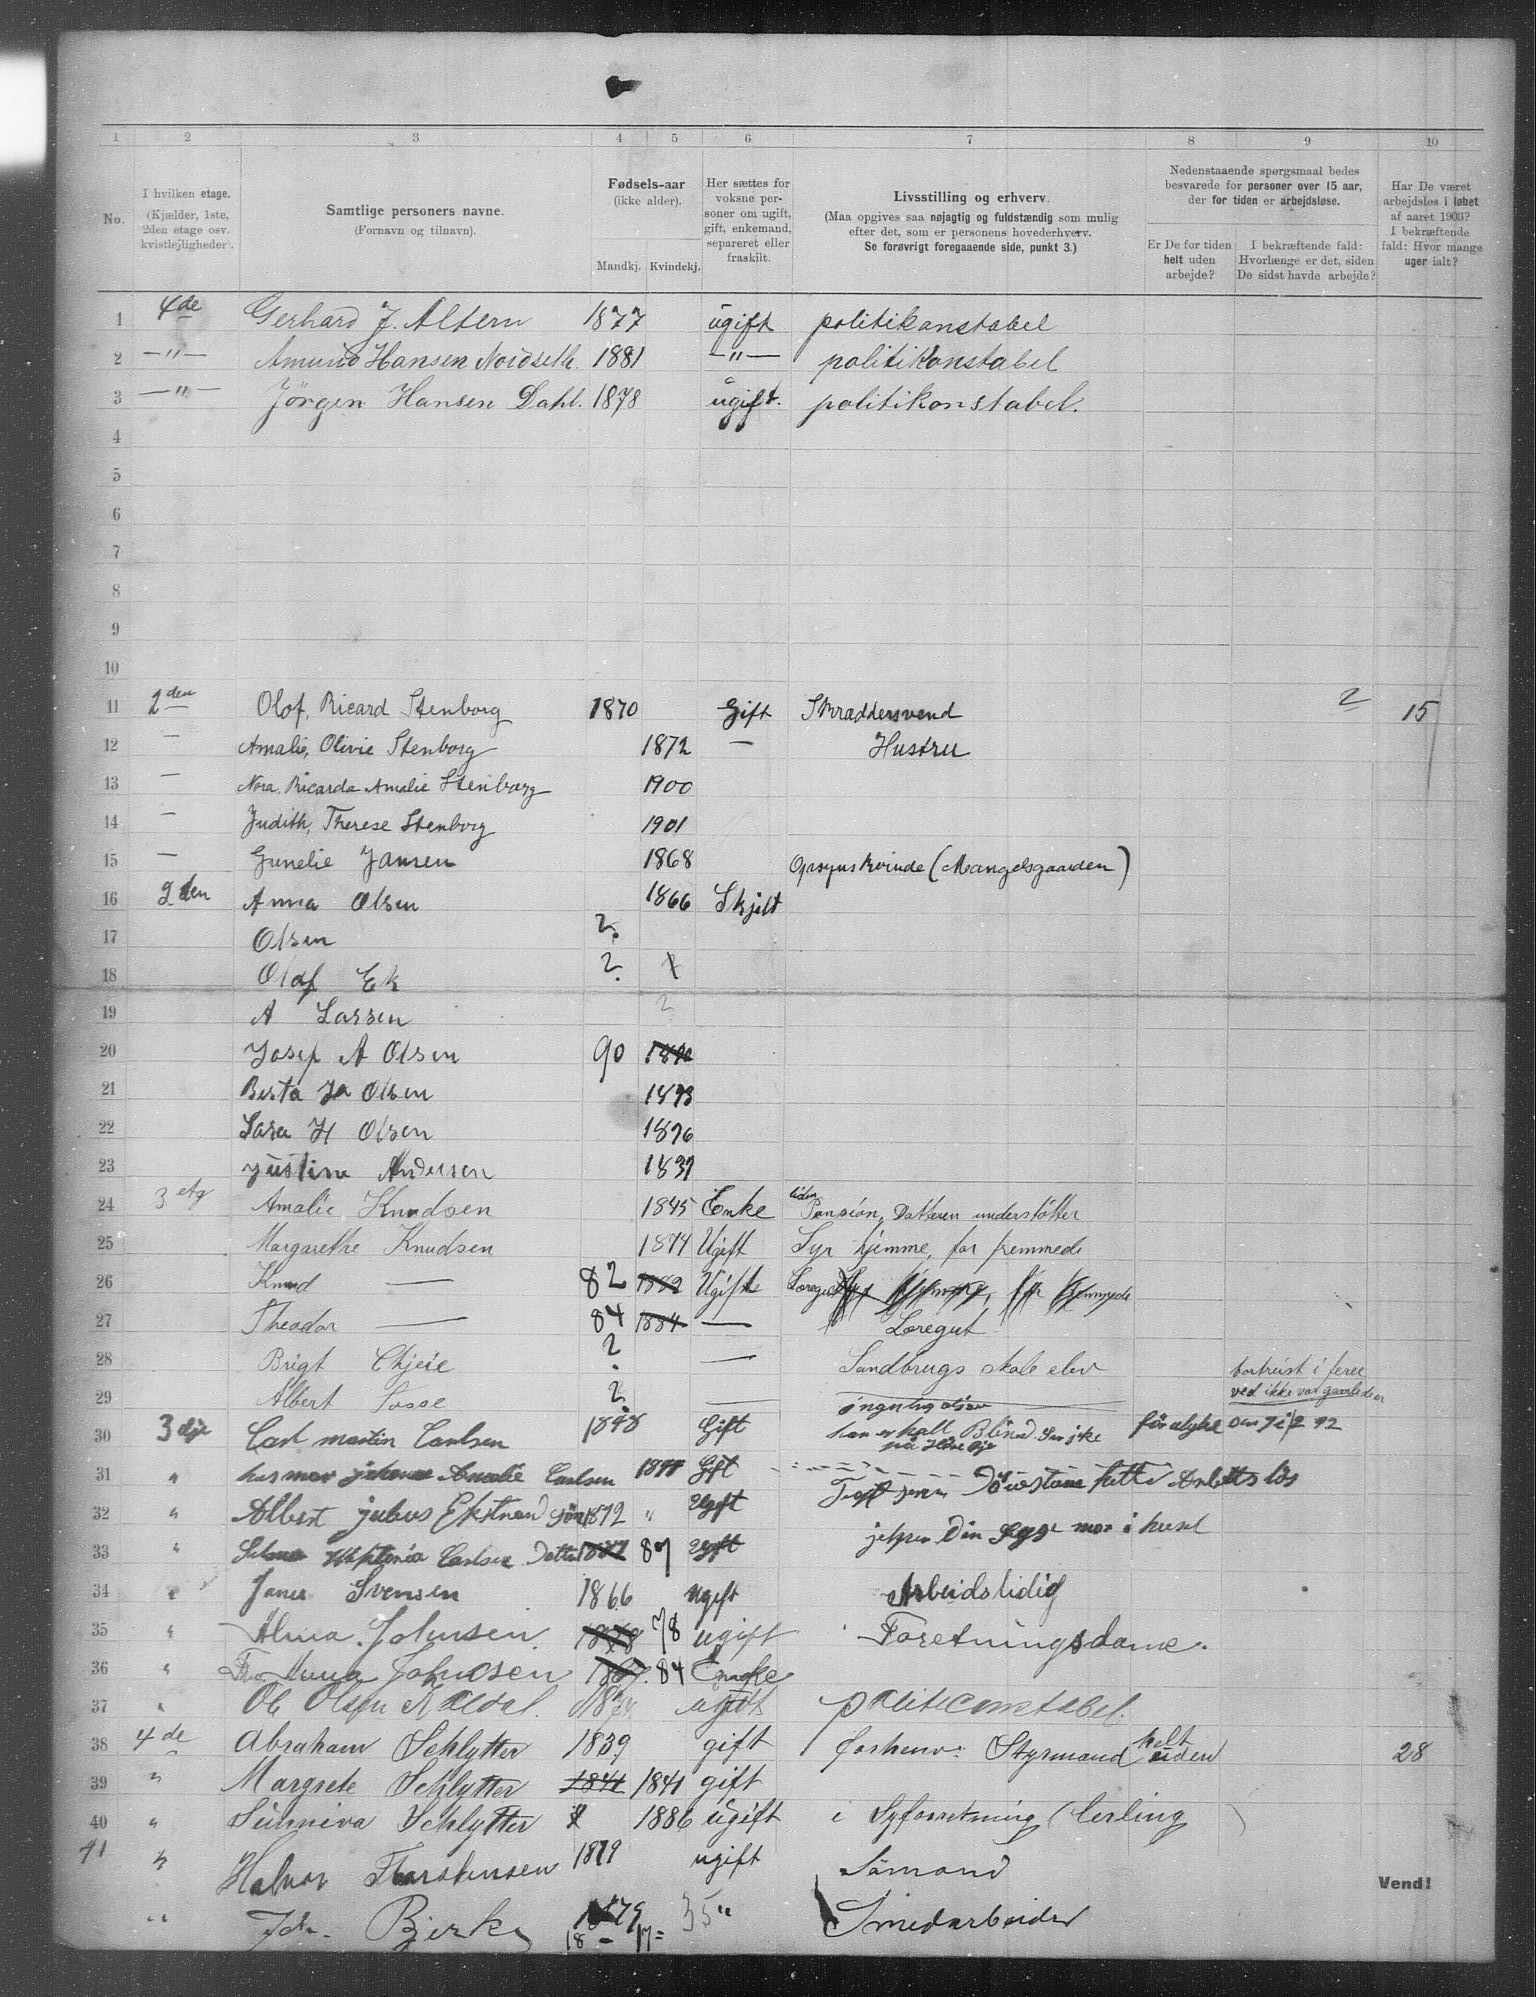 1 2 3 4 5 6 7 8 9 10
No.
I hvilken etage.
(Kjælder, 1ste,
2den etage osv.
kvistlejligheder).
Samtlige personers navne.
(Fornavn og tilnavn).
Fødsels-aar
(ikke alder).
Mandkj. Kvindekj.
Her sættes for
voksne per-
soner om ugift,
gift, enkemand,
separeret eller
fraskilt.
Livsstilling og erhverv.
(Maa opgives saa nøjagtig og fuldstændig som mulig
efter det, som er personens hovederhverv.
Se forøvrigt foregaaende side, punkt 3.)
Nedenstaaende spørgsmaal bedes
besvarede for personer over 15 aar,
der for tiden er arbejdsløse.
Er De for tiden
helt uden
arbejde?
I bekræftende fald:
Hvorlænge er det, siden
De sidst havde arbejde?
Har De været
arbejdsløs i løbet
af aaret 1903?
I bekræftende
fald: Hvor mange
uger ialt?
1 4de Gerhard J. Altern 1877 ugift politikonstabel
2 —"— Amund Hansen Nordseth. 1881 —"— politikonstabel
3 —"— Jörgen Hansen Dahl. 1878 ugift. politikonstabel.
4
5
6
7
8
9
10
11 2den Olof, Ricard Stenborg 1870 Gift Skræddersvend 2 15
12 — Amalie, Olivie Stenborg 1872 — Hustru
13 — Nora, Ricarda Amalie Stenborg 1900
14 — Judith, Therese Stenborg 1901
15 — Gunelie Jansen 1868 Opsynskvinde (Mangelsgaarden)
16 2den Anna Olsen 1866 Skjilt
17 Olsen ?
18 Olaf Ek ?
19 A Larsen ?
20 Josef A Olsen 90 1890
21 Berta Olsen 1893
22 Sara H Olsen 1896
23 Justine Andersen
24 3 etg Amalie Knudsen 1845 Enke liden Pension, Datteren understøtter
25 Margarethe Knudsen 1874 Ugift Syr hjemme, for fremmede
26 Knud — 82 1882 Ugifte
27 Theodor — 84 1884 — Løregut
28 Brigt ? — Landbrugs skole elev
29 Albert ? — ved ikke
30 Carl martin Carlsen Gift Blind
31 " Amalie Carlsen Gift
32 " Albert julius Ekstrand Sön 1872 " Ugift
33 " Carlsen Datter 87 Ugift i huset
34 " Svensen 1866 ugift Arbeidsledig
35 " Johnsen 1878 78 ugift Foretningsdame.
36 " Fru Anna Johnsen 84 Encke
37 " Ole Olsen ugift politiconstabel.
38 4de Abraham Schlytter 1839 gift forhenv: Styrmand helt uden 28
39 " Margrete Schlytter 1841 1841 gift
40 " Sunniva Schlytter 1886 ugift i Syforretning (Cerling)
41 " Halvor Thorstensen 1879 ugift Sömand
" Bjerke 1879 35 " Smedarbeider
18 - 17 =
Vend!